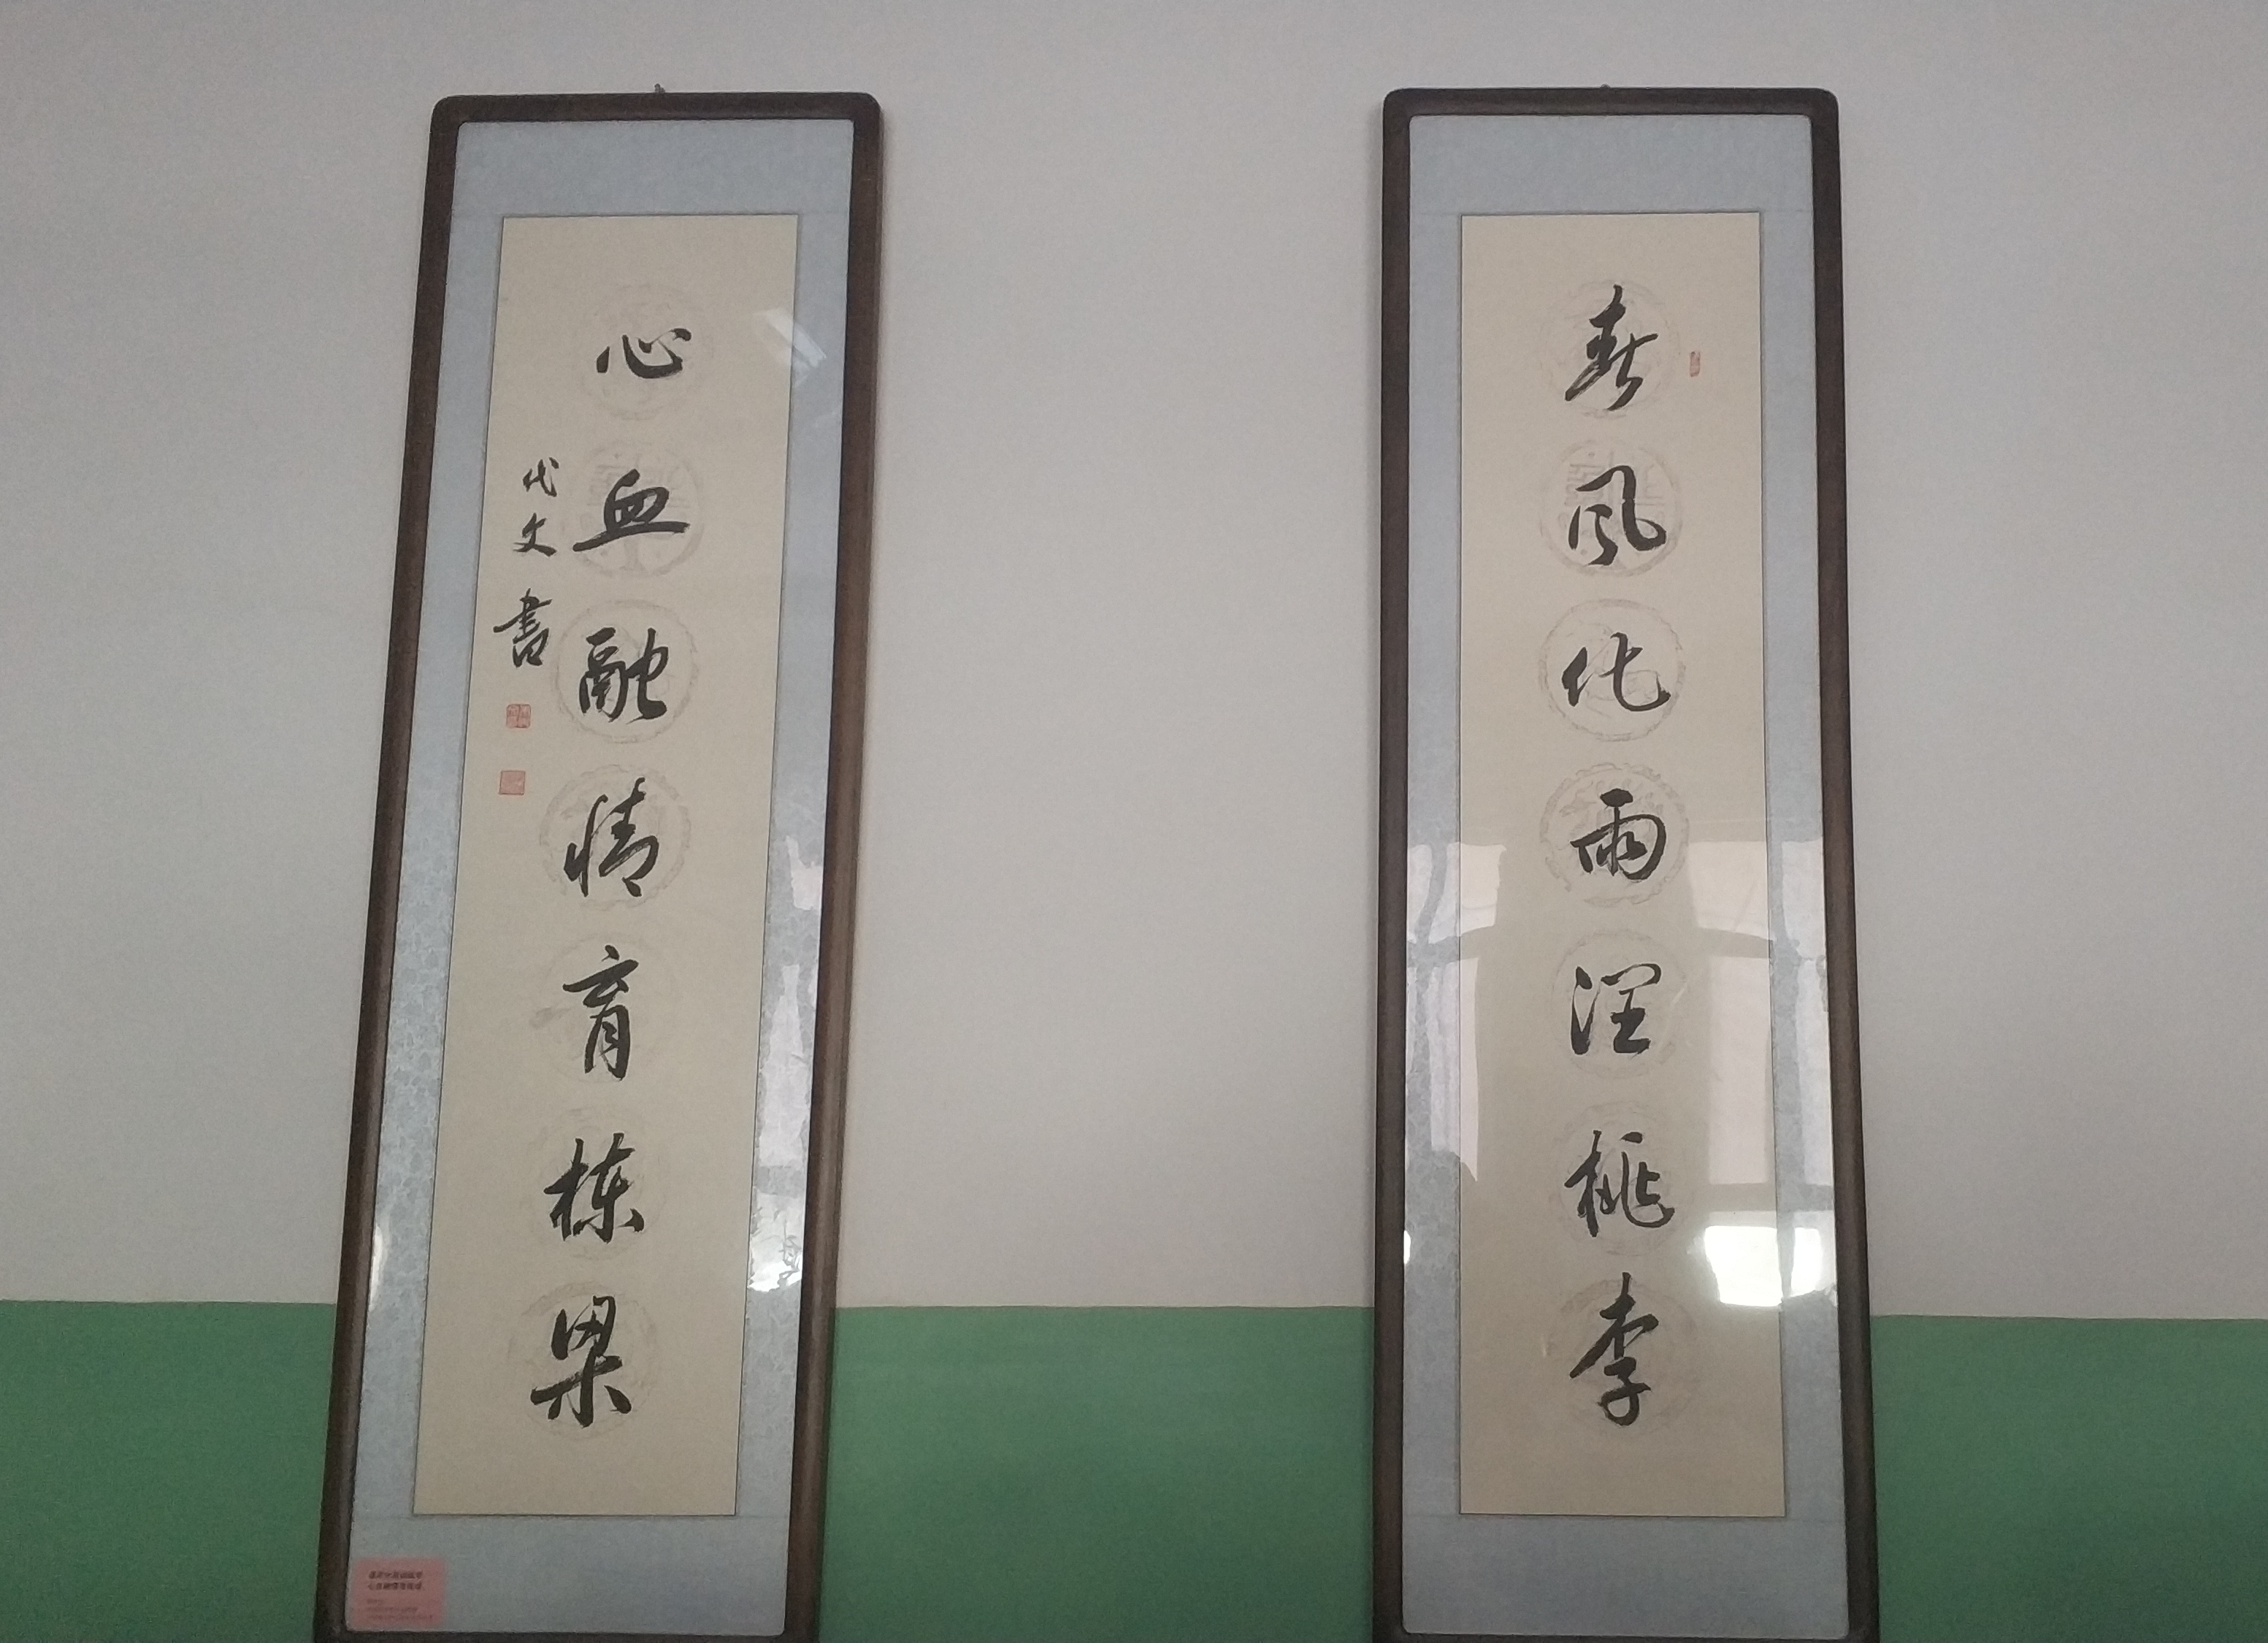 春风化雨润桃李
心血融情育栋梁
代文書